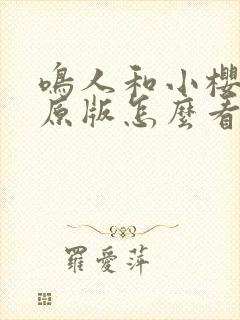 鳴人和小櫻
原版怎麼看
羅愛萍